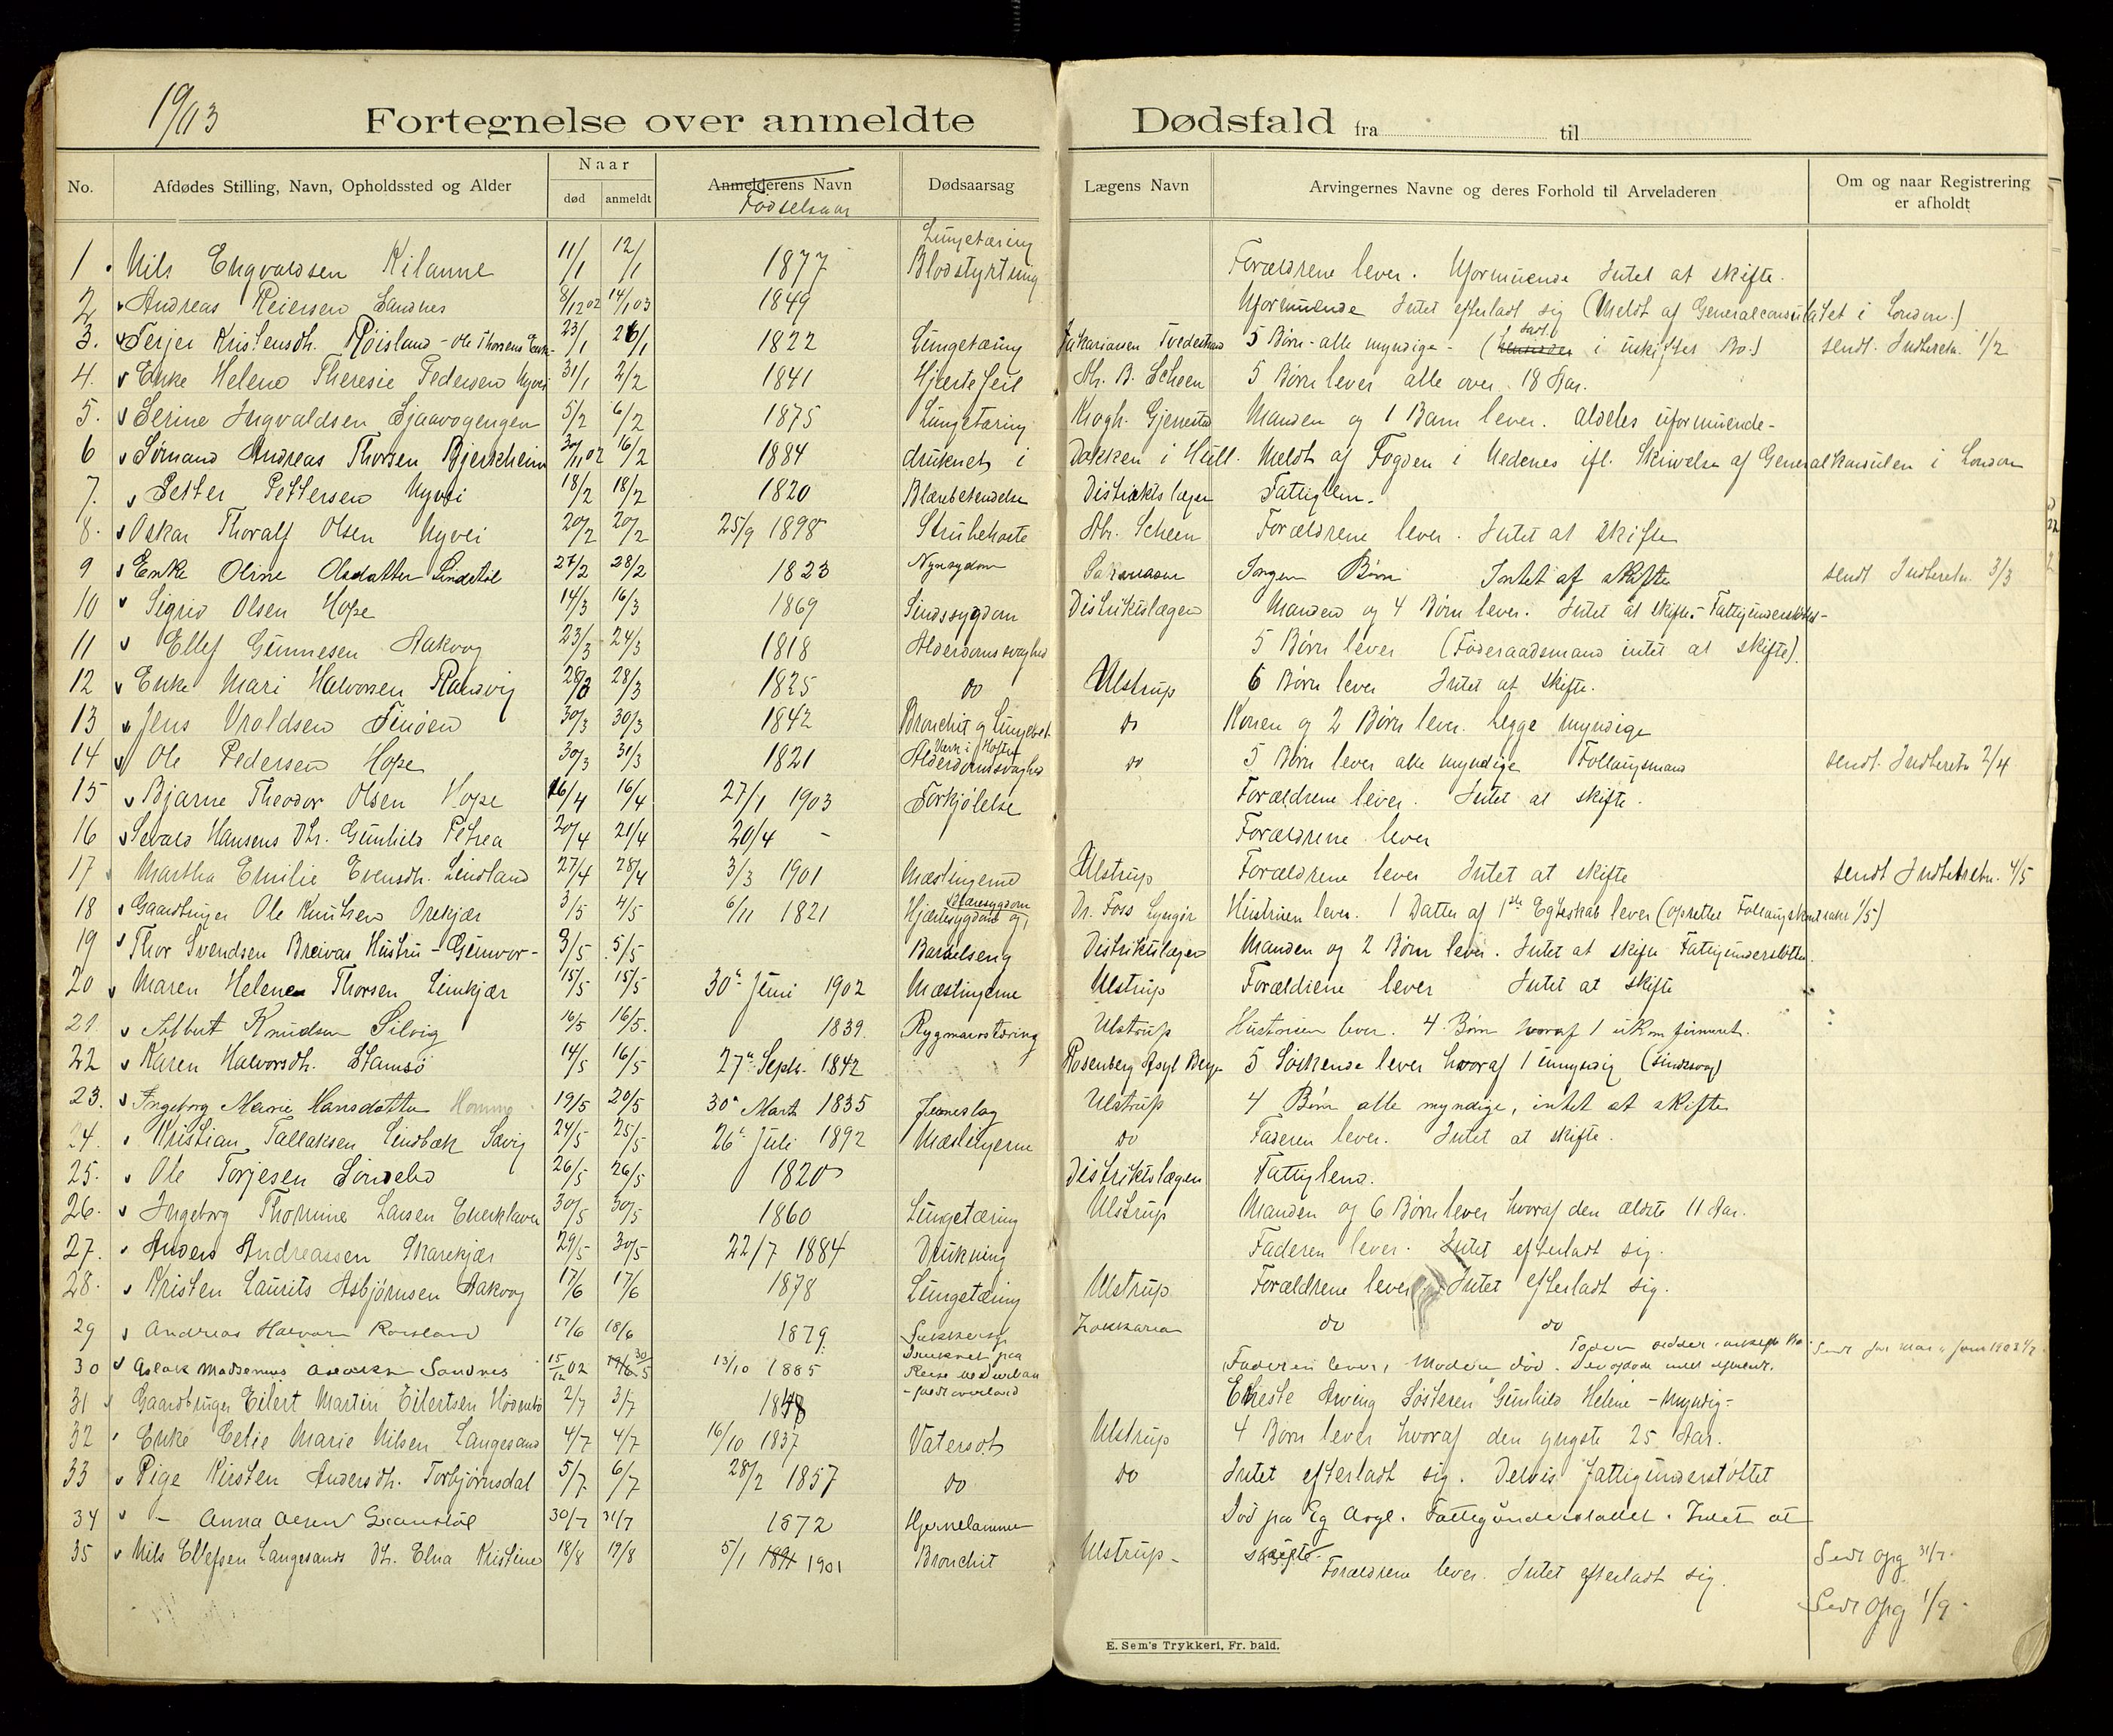 1903
Fortegnelse over anmeldte Dødsfald fra til
No. Afdødes Stilling, Navn, Opholdssted og Alder Naar død anmeldt Anmelderens Navn Fødselsaar Dødsaarsag Lægens Navn Arvingernes Navne og deres Forhold til Arveladeren Om og naar Registrering er afholdt
1 Nils Engvaldsen Kilanne 11/1 12/1 1877 Lungetæring Blodstyrtning Forældrene lever. Uformuende Intet at skifte.
2 Andreas Reiersen Sandnes 8/12 02 14/1 03 1849 Uformuende Intet efterladt sig (Meldt af Generalconsulatet i London.)
3. Terjer Kristensdh. Røisland - Ole Thorsens Enke 23/1 26/1 1822 Lungetæring Zakariasen Tvedestrand 5 Børn - alle myndige - ( sadt i uskiftet Bo.) sendt. Indberetn. 1/2
4. Enke Helene Theresie Pedersen Nyvei 31/1 2/2 1841 Hjertefeil Chr. B. Scheen 5 Børn lever alle over 18 Aar.
5. Serine Ingvaldsen Sjaavogengen 5/2 6/2 1875 Lungetæring Krogh. Gjerestad Manden og 1 Barn lever. aldeles uformuende -
6 Sømand Andreas Thorsen Bjerkheim 30/11 02 16/2 1884 druknet i Dokken i Hull. Meldt af Fogden i Nedenes ifl. Skrivelse af Generalkonsulen i London
7. Petter Pettersen Nyvei 18/2 18/2 1820 Blærebetendelse Distriktslægen Fattiglem.
8. Oskar Thoralf Olsen Nyvei 20/2 20/2 25/9 1898 Strubehoste Chr. Scheen Forældrene lever. Intet at skifte
9 Enke Oline Olsdatter Lindstøl 27/2 28/2 1823 Nyresygdom Zakariasen Ingen Børn Intet at skifte sendt Indberetn. 3/3
10 Sigrid Olsen Hope 14/3 16/3 1869 Sindssygdom Distriktslægen Manden og 4 Børn lever. Intet at skifte. - Fattigunderstøttet -
11 Ellef Gunnesen Aakvog 23/3 24/3 1818 Alderdomssvaghed 5 Børn lever (Føderaadsmand intet at skifte).
12 Enke Mari Halvorsen Randvig 28/3 28/3 1825 do Ulstrup 6 Børn lever Intet at skifte.
13 Jens Vroldsen Finøen 30/3 30/3 1842 Bronchit og Lungebet. do Konen og 2 Børn lever. begge myndige
14 Ole Pedersen Hope 30/3 31/3 1821 Værk i Hoften Alderdomssvaghed do 5 Børn lever alle myndige Follaugsmand sendt. Indberetn 2/4
15 Bjarne Theodor Olsen Hope 16/4 16/4 27/1 1903 Forkjølelse Forældrene lever. Intet at skifte.
16 Sevald Hansens Dtr. Gunhild Petrea 20/4 21/4 20/4 - Forældrene lever
17 Martha Emilie Evensdh. Lindland 27/4 28/4 3/3 1901 Mæslingerne Ulstrup Forældrene lever Intet at skifte sendt Indberetn. 4/5
18 Gaardbruger Ole Knutsen Orekjær 3/5 4/5 6/11 1821 Hjertesygdom og Blæresygdom Dr. Foss Lyngør Hustruen lever. 1 Datter af 1ste Egteskab lever (oprettet Follaugskontrakt 1/5)
19 Thor Svendsen Breivas Hustru - Gunvor - 3/5 5/5 Barselseng Distriktslægen Manden og 2 Børn lever. Intet at skifte Fattigunderstøttet.
20 Maren Helene Thorsen Limkjær 15/5 15/5 30te Juni 1902 Mæslingerne Ulstrup Forældrene lever Intet at skifte
21. Albert Knudsen Silvig 16/5 16/5. 1839. Rygmarvstæring Ulstrup Hustruen lever. 4 Børn hvoraf 1 ukonfirmeret.
22 Karen Halvorsdh. Stamsø 14/5 16/5 27de Septr. 1842 Rosenberg Asyl Bergen 5 Søskende lever hvoraf 1 umyndig (sindssvag)
23. Ingeborg Marie Hansdatter Homme 19/5 20/5 30te Marts 1835 Jerneslag Ulstrup 4 Børn alle myndige, intet at skifte
24. Kristian Tallaksen Lindbæk Savig 24/5 25/5 26de Juli 1892 Mæslingerne do Faderen lever. Intet at skifte.
25. Ole Torjesen Søndeled 26/5 26/5 1820 Distriktslægen Fattiglem.
26. Ingeborg Thomine Larsen Enerklaven 30/5 30/5 1860 Lungetæring Ulstrup Manden og 6 Børn lever hvoraf den ældste 11 Aar.
27. Anders Andreassen Skarekjær 29/5 30/5 22/7 1884 Drukning Faderen lever. Intet efterladt sig.
28. Kristen Laurits Asbjørnsen Aakvog 17/6 17/6 1878 Lungetæring Ulstrup Forældrene lever. Intet efterladt sig.
29 Andreas Halvor Røisland 17/6 18/6 1879. Sukkersyge Zakkarias do do
30 Aslak Madsenius Sandnes 15/12 02 30/5 13/10 1885 Druknet paa Reise Faderen lever, Moderen død. Fader sidder i uskiftet Bo. Sendt for Mai & Juni 1903
31 Gaardbruger Eilert Martin Eilertsen Hødnebø 2/7 3/7 1848 Eneste Arving Søsteren Gunhild Helene - myndig -
32 Enke Celie Marie Nilsen Langesand 4/7 4/7 16/10 1837 Vatersot Ulstrup 4 Børn lever hvoraf den yngste 25 Aar.
33 Pige Kirsten Andersdh. Torbjørnsdal 5/7 6/7 28/2 1857 do do Intet efterladt sig. Delvis fattigunderstøttet
34 - Anna Olsen Granstøl 30/7 31/7 1872 Hjernelammelse Død paa Eg Asyl. Fattigunderstøttet. Intet at skifte. Sendt Opg 31/7.
35 Nils Ellefsen Langesands Dt. Elna Kristine 18/8 19/8 5/1 1891 1901 Bronchit Ulstrup - Forældrene lever. Intet efterladt sig. Sendt Opg 1/9.
E. Sem's Trykkeri, Fr. hald.